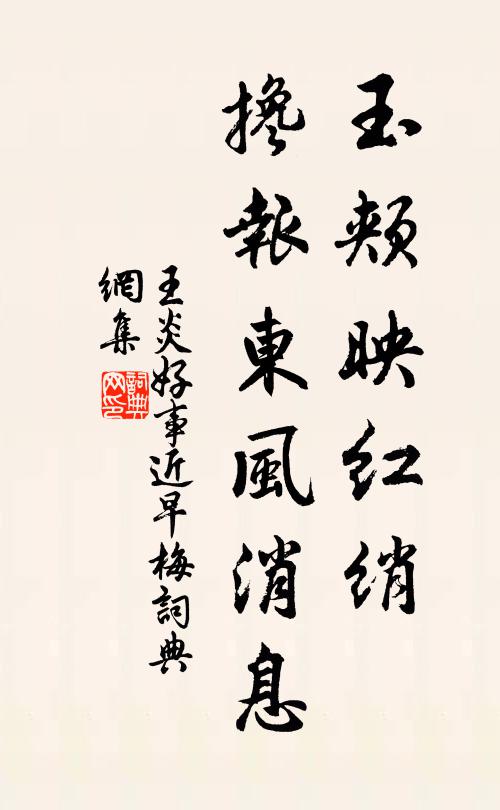 玉頰映紅綃
攙報東風消息
王炎好事近早梅詞典
網集
詞典
网印